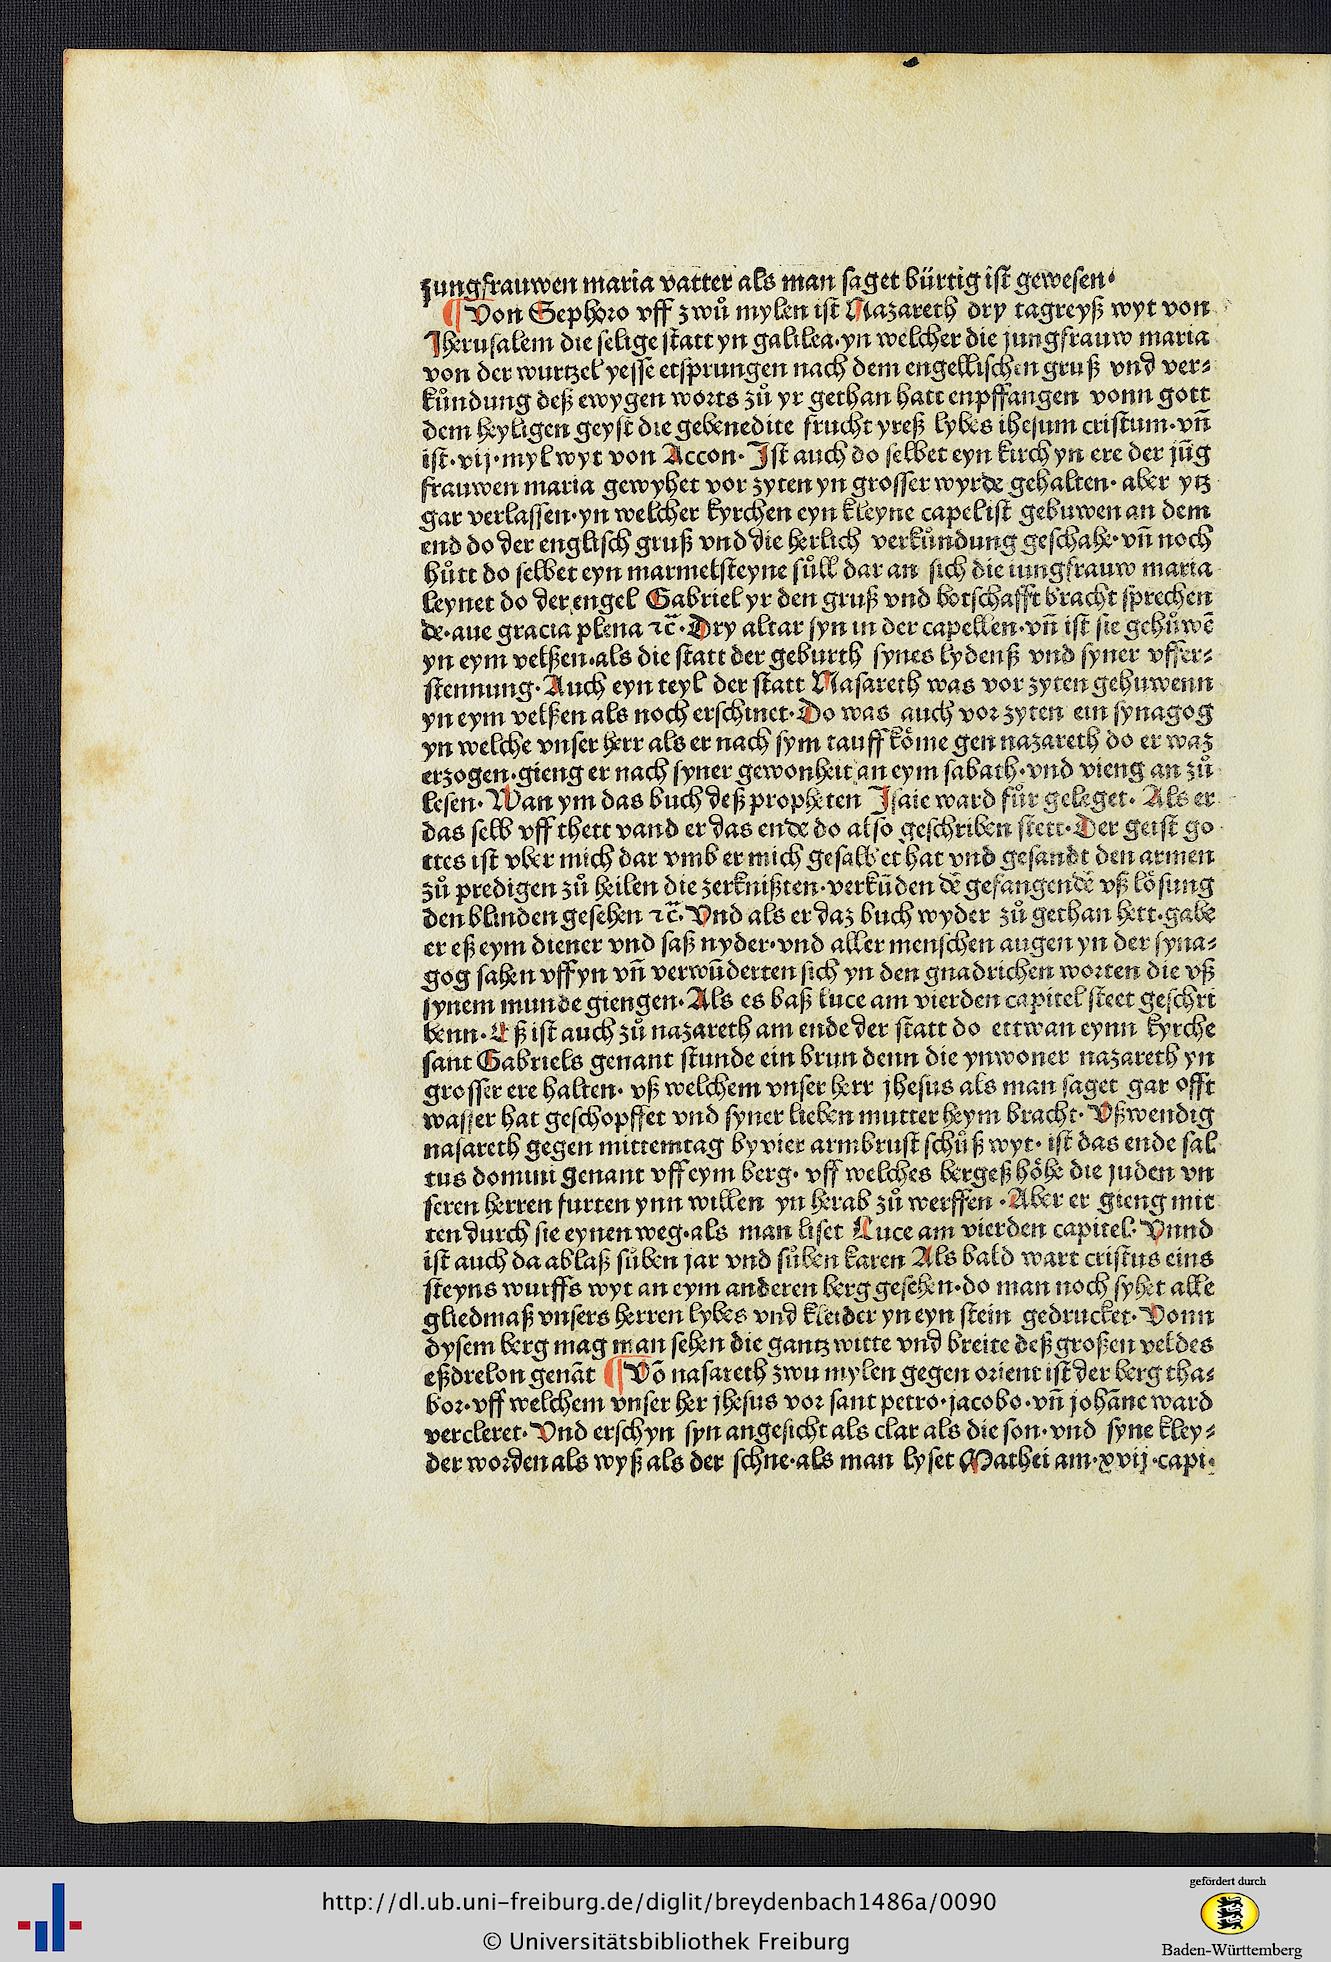 jungfrauwen maria vatter als man saget bürtig ist gewesen·
¶ Von Sephoro vff zwů mylen ist Nazareth dry tagreyß wyt von
Jherusalem die selige statt yn galilea·yn welcher die jungfrauw maria
von der wurtzel yesse etsprungen nach dem engellischen gruß vnd ver⸗
kůndung deß ewygen worts zů yr gethan hatt enpffangen vonn gott
dem heyligen geyst die gebenedite frucht yreß lybes ihesum cristum·vn̄
ist·vij·myl wyt von Accon· Jst auch do selbet eyn kirch yn ere der jūg
frauwen maria gewyhet vor zyten yn grosser wyrde gehalten· aber ytz
gar verlassen·yn welcher kyrchen eyn kleyne capel ist gebuwen an dem
end do der englisch gruß vnd die herlich verkůndung geschahe·vn̄ noch
hůtt do selbet eyn marmelsteyne sůll dar an sich die iungfrauw maria
leynet do der engel Gabriel yr den gruß vnd botschafft bracht sprechen
de·aue gracia plena ⁊c̄·Dry altar syn in der capellen·vn̄ ist sie gehůwē
yn eym velßen·als die statt der geburth synes lydenß vnd syner vffer⸗
stennung·Auch eyn teyl der statt Nasareth was vor zyten gehuwenn
yn eym velßen als noch erschinet·Do was auch vor zyten ein synagog
yn welche vnser herr als er nach sym tauff kōme gen nazareth do er waz
erzogen·gieng er nach syner gewonheit an eym sabath·vnd vieng an zů
lesen· Wan ym das buch deß propheten Jsaie ward fůr geleget· Als er
das selb vff thett vand er das ende do also geschriben stett·Der geist go
ttes ist vber mich dar vmb er mich gesalbet hat vnd gesandt den armen
zů predigen zů heilen die zerknißten·verkūden dē gefangendē vß lösung
den blinden gesehen ⁊c̄·Vnd als er daz buch wyder zů gethan hett·gabe
er eß eym diener vnd saß nyder·vnd aller menschen augen yn der syna⸗
gog sahen vff yn vn̄ verwūderten sich yn den gnadrichen worten die vß
synem munde giengen·Als es baß luce am vierden capitel steet geschri
benn·Eß ist auch zů nazareth am ende der statt do ettwan eynn kyrche
sant Gabriels genant stunde ein brun denn die ynwoner nazareth yn
grosser ere halten· vß welchem vnser herr jhesus als man saget gar offt
wasser hat geschopffet vnd syner lieben mutter heym bracht· Vßwendig
nasareth gegen mittemtag by vier armbrust schůß wyt· ist das ende sal
tus domini genant vff eym berg· vff welches bergeß höhe die juden vn
seren herren furten ynn willen yn herab zů werffen·Aber er gieng mit
ten durch sie eynen weg·als man liset Luce am vierden capitel· Vnnd
ist auch da ablaß sůben jar vnd sůben karen Als bald wart cristus eins
steyns wurffs wyt an eym anderen berg gesehen·do man noch syhet alle
gliedmaß vnsers herren lybes vnd kleider yn eyn stein gedrucket· Vonn
dysem berg mag man sehen die gantz witte vnd breite deß großen veldes
eßdrelon genāt ¶ Vō nasareth zwu mylen gegen orient ist der berg tha⸗
bor·vff welchem vnser her jhesus vor sant petro·jacobo·vn̄ johāne ward
vercleret·Vnd erschyn syn angesicht als clar als die son·vnd syne kley⸗
der worden als wyß als der schne·als man lyset Mathei am·xvij·capi·
http://dl.ub.uni-freiburg.de/diglit/breydenbach1486a/0090
© Universitätsbibliothek Freiburg
gefördert durch
Baden-Württemberg